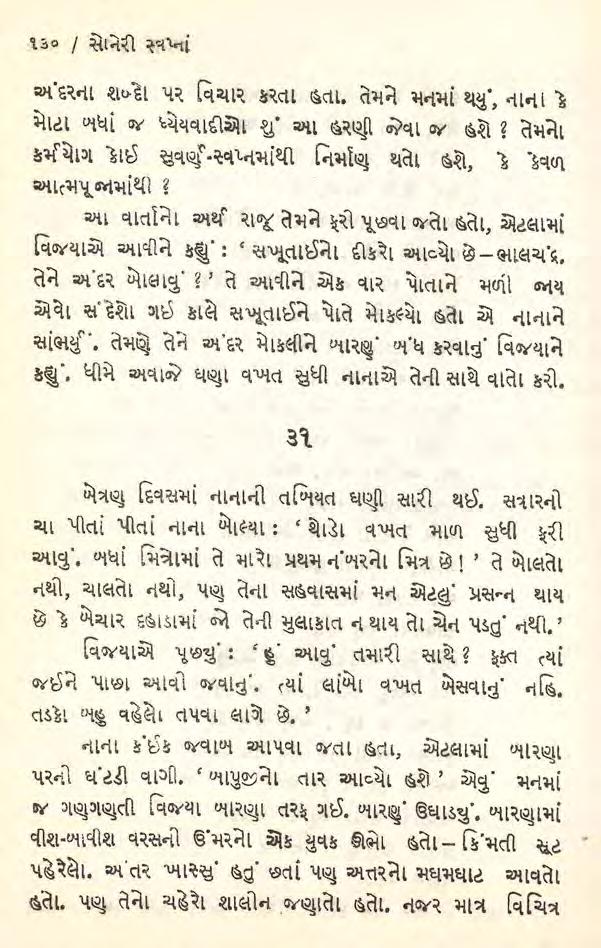 ૧૩૦ / સોનેરી સ્વપ્નાં
અંદરના શબ્દો પર વિચાર કરતા હતા. તેમને મનમાં થયું, નાના કે
મોટા બધાં જ ધ્યેયવાદીઓ શું આ હરણી જેવા જ હશે ? તેમનો
કર્મયોગ કોઈ સુવર્ણ-સ્વપ્નમાંથી નિર્માણ થતો હશે, કે કેવળ
આત્મપૂજામાંથી ?
આ વાર્તાનો અર્થ રાજૂ તેમને ફરી પૂછવા જતો હતો, એટલામાં
વિજયાએ આવીને કહ્યું : ‘ સખૂતાઈનો દીકરો આવ્યો છે – ભાલચંદ્ર.
તેને અંદર બોલાવું ? ’ તે આવીને એક વાર પોતાને મળી જાય
એવો સંદેશો ગઈ કાલે સખૂતાઈને પોતે મોકલ્યો હતો એ નાનાને
સાંભર્યું. તેમણે તેને અંદર મોકલીને બારણું બંધ કરવાનું વિજયાને
કહ્યું. ધીમે અવાજે ઘણા વખત સુધી નાનાએ તેની સાથે વાતો કરી.
૩૧
બેત્રણ દિવસમાં નાનાની તબિયત ઘણી સારી થઈ. સવારની
ચા પીતાં પીતાં નાના બોલ્યા : ‘ થોડો વખત માળ સુધી ફરી
આવું. બધાં મિત્રોમાં તે મારો પ્રથમ નંબરનો મિત્ર છે ! ’ તે બોલતો
નથી, ચાલતો નથી, પણ તેના સહવાસમાં મન એટલું પ્રસન્ન થાય
છે કે બેચાર દહાડામાં જો તેની મુલાકાત ન થાય તો ચેન પડતું નથી. ’
વિજયાએ પૂછ્યું : ‘ હું આવું તમારી સાથે ? ફક્ત ત્યાં
જઈને પાછા આવી જવાનું. ત્યાં લાંબો વખત બેસવાનું નહિ.
તડકો બહુ વહેલો તપવા લાગે છે. ’
નાના કંઈક જવાબ આપવા જતા હતા, એટલામાં બારણા
પરની ઘંટડી વાગી. ‘ બાપુજીનો તાર આવ્યો હશે ’ એવું મનમાં
જ ગણગણતી વિજયા બારણા તરફ ગઈ. બારણું ઉઘાડ્યું. બારણામાં
વીશ-બાવીશ વરસની ઉંમરનો એક યુવક ઊભો હતો – કિંમતી સૂટ
પહેરેલો. અંતર ખાસ્સું હતું છતાં પણ અત્તરનો મઘમઘાટ આવતો
હતો. પણ તેનો ચહેરો શાલીન જણાતો હતો. નજર માત્ર વિચિત્ર